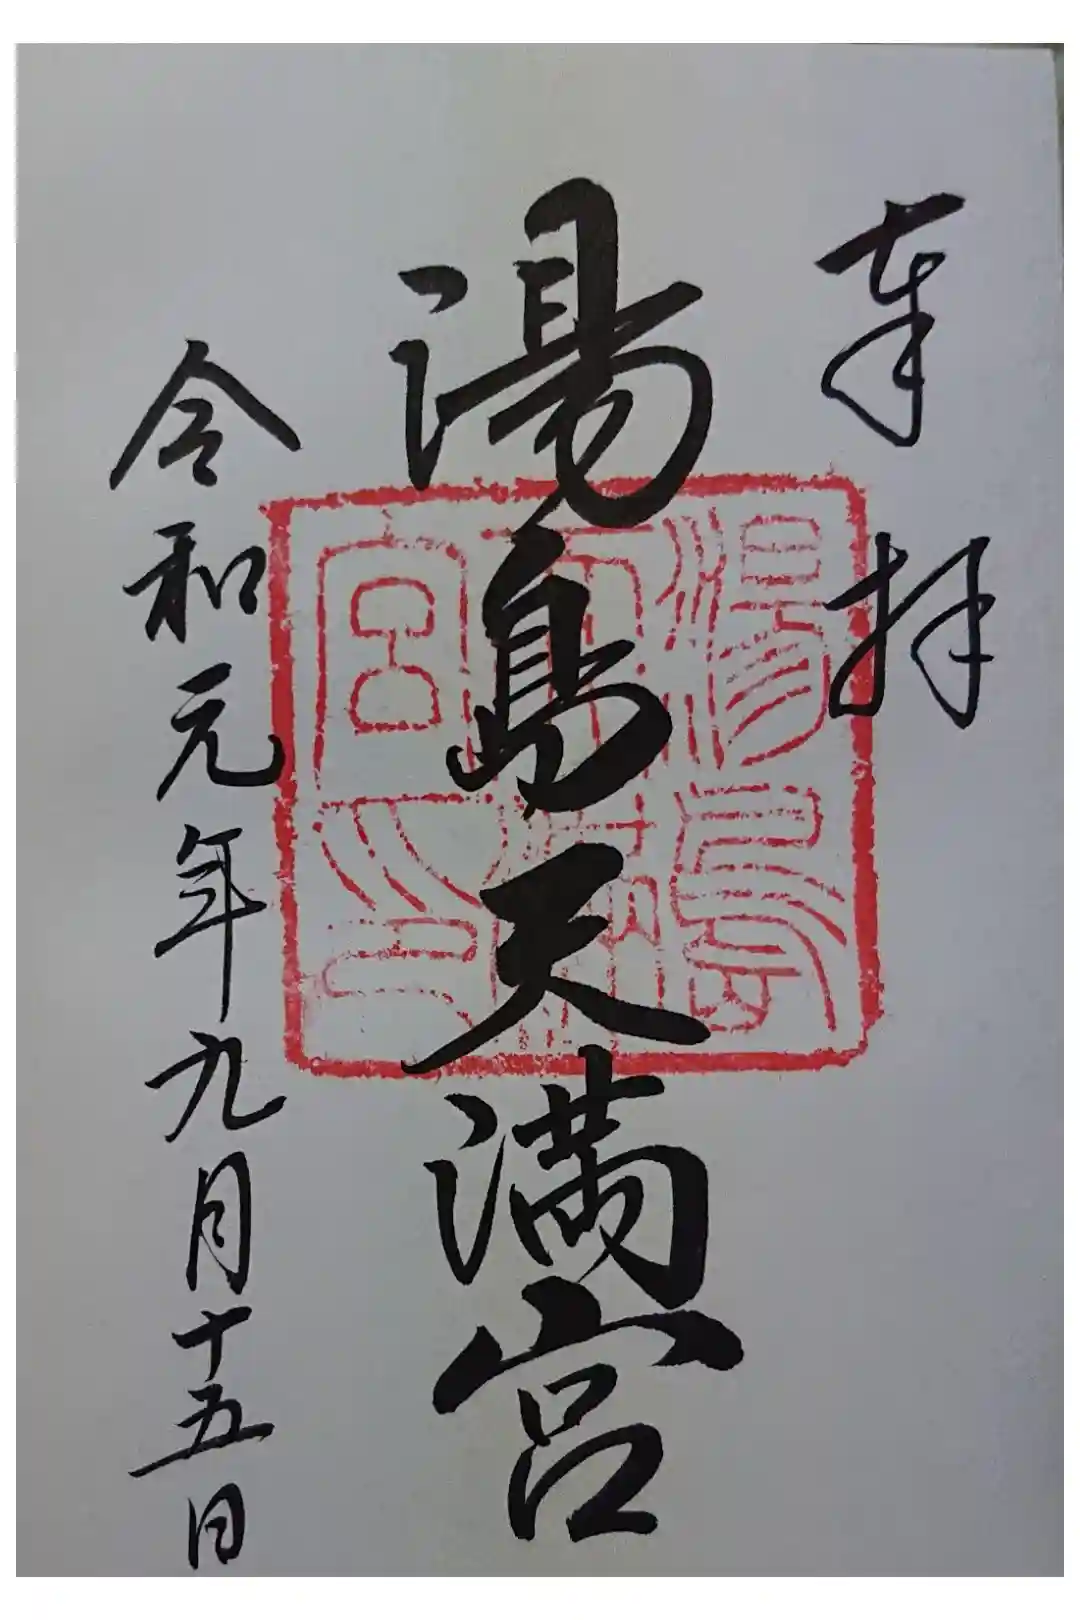 奉拝
湯島天満宮
令和元年九月十五日
湯島
天満
宮印